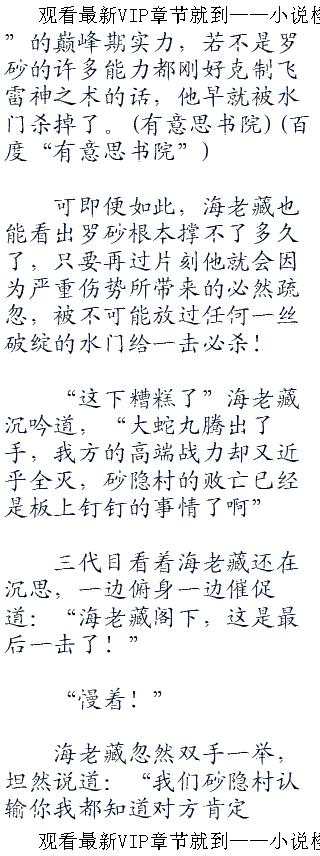 观看最新VIP章节就到——小说检
”的巅峰期实力，若不是罗
砂的许多能力都刚好克制飞
雷神之术的话，他早就被水
门杀掉了。(有意思书院)(百
度“有意思书院”)
可即便如此，海老藏也
能看出罗砂根本撑不了多久
了，只要再过片刻他就会因
为严重伤势所带来的必然疏
忽，被不可能放过任何一丝
破绽的水门给一击必杀！
“这下糟糕了”海老藏
沉吟道，“大蛇丸腾出了
手，我方的高端战力却又近
乎全灭，砂隐村的败亡已经
是板上钉钉的事情了啊”
三代目看着海老藏还在
沉思，一边俯身一边催促
道：“海老藏阁下，这是最
后一击了！”
“慢着！”
海老藏忽然双手一举，
坦然说道：“我们砂隐村认
输你我都知道对方肯定
观看最新VIP章节就到——小说检